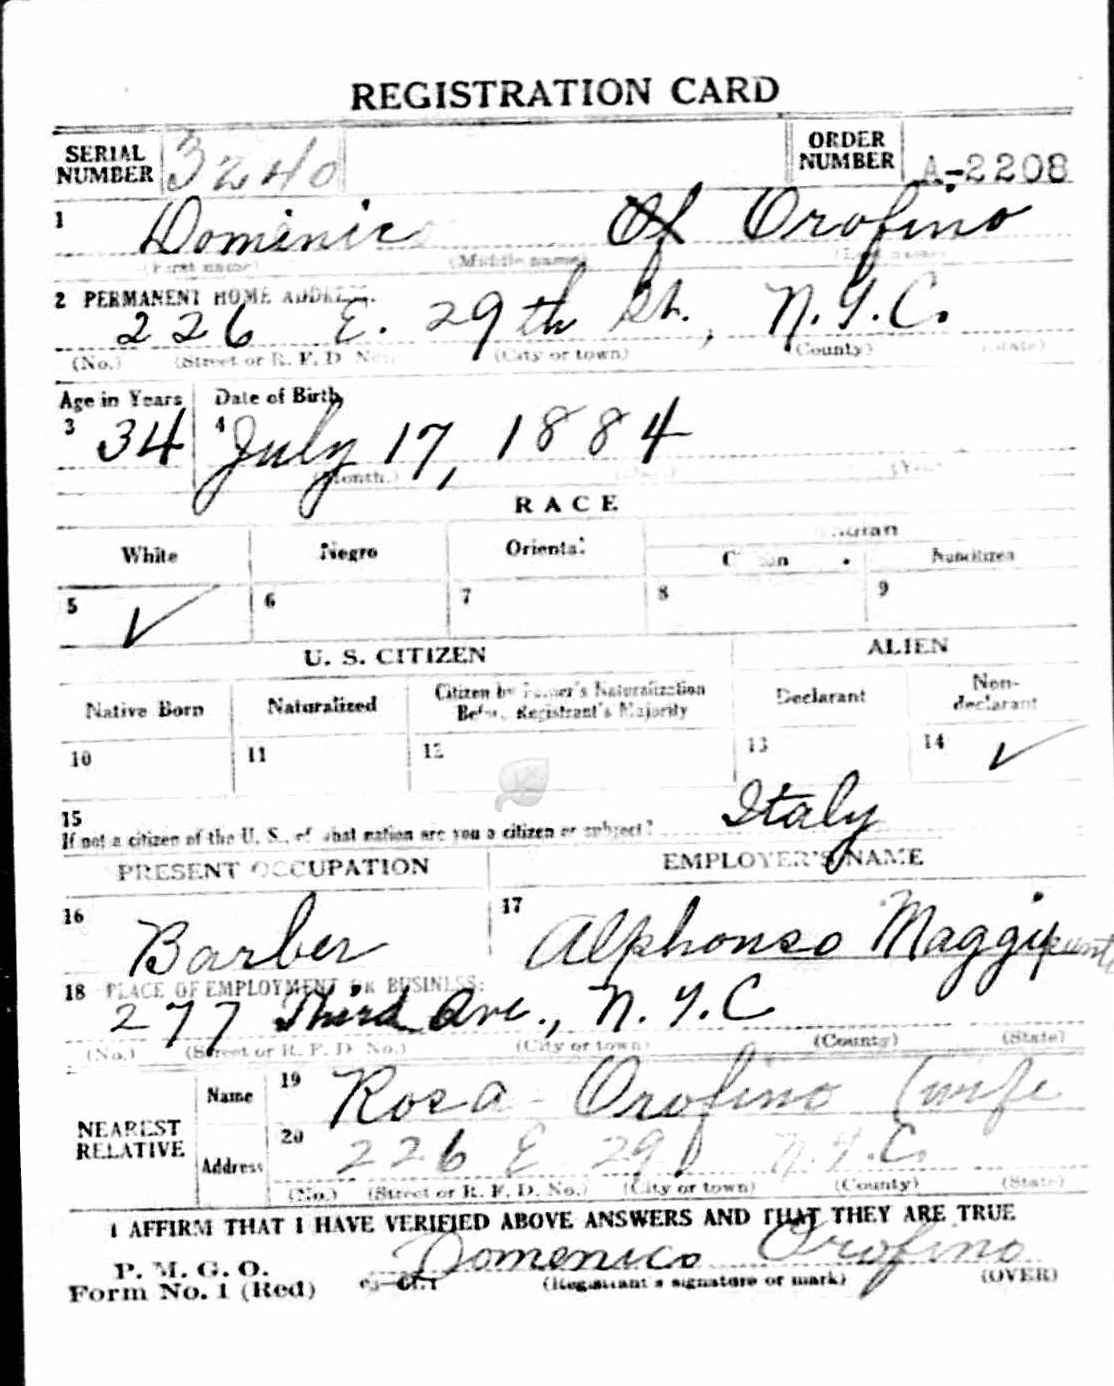 REGISTRATION CARD
SERIAL NUMBER 3240 ORDER NUMBER A-2208
1 Domenico Of Orofino
(First name) (Middle name) (Last name)
2 PERMANENT HOME ADDRESS:
226 E. 29th St., N.Y.C.
(No.) (Street or R. F. D. No.) (City or town) (County) (State)
Age in Years Date of Birth
3 34 4 July 17, 1884
(Month.) (Day.) (Year.)
RACE
White Negro Oriental Indian
Citizen Noncitizen
5 ✓ 6 7 8 9
U. S. CITIZEN ALIEN
Native Born Naturalized Citizen by Father's Naturalization Before Registrant's Majority Declarant Non-declarant
10 11 12 13 14 ✓
15
If not a citizen of the U. S., of what nation are you a citizen or subject? Italy
PRESENT OCCUPATION EMPLOYER'S NAME
16 Barber 17 Alphonso
18 PLACE OF EMPLOYMENT OR BUSINESS:
277 Third Ave., N.Y.C
(No.) (Street or R. F. D. No.) (City or town) (County) (State)
NEAREST RELATIVE
Name 19 Rosa Orofino (wife
Address 20 226 E 29 N.Y.C.
(No.) (Street or R. F. D. No.) (City or town) (County) (State)
I AFFIRM THAT I HAVE VERIFIED ABOVE ANSWERS AND THAT THEY ARE TRUE
P. M. G. O.
Form No. 1 (Red) Domenico Orofino
(Registrant's signature or mark) (OVER)